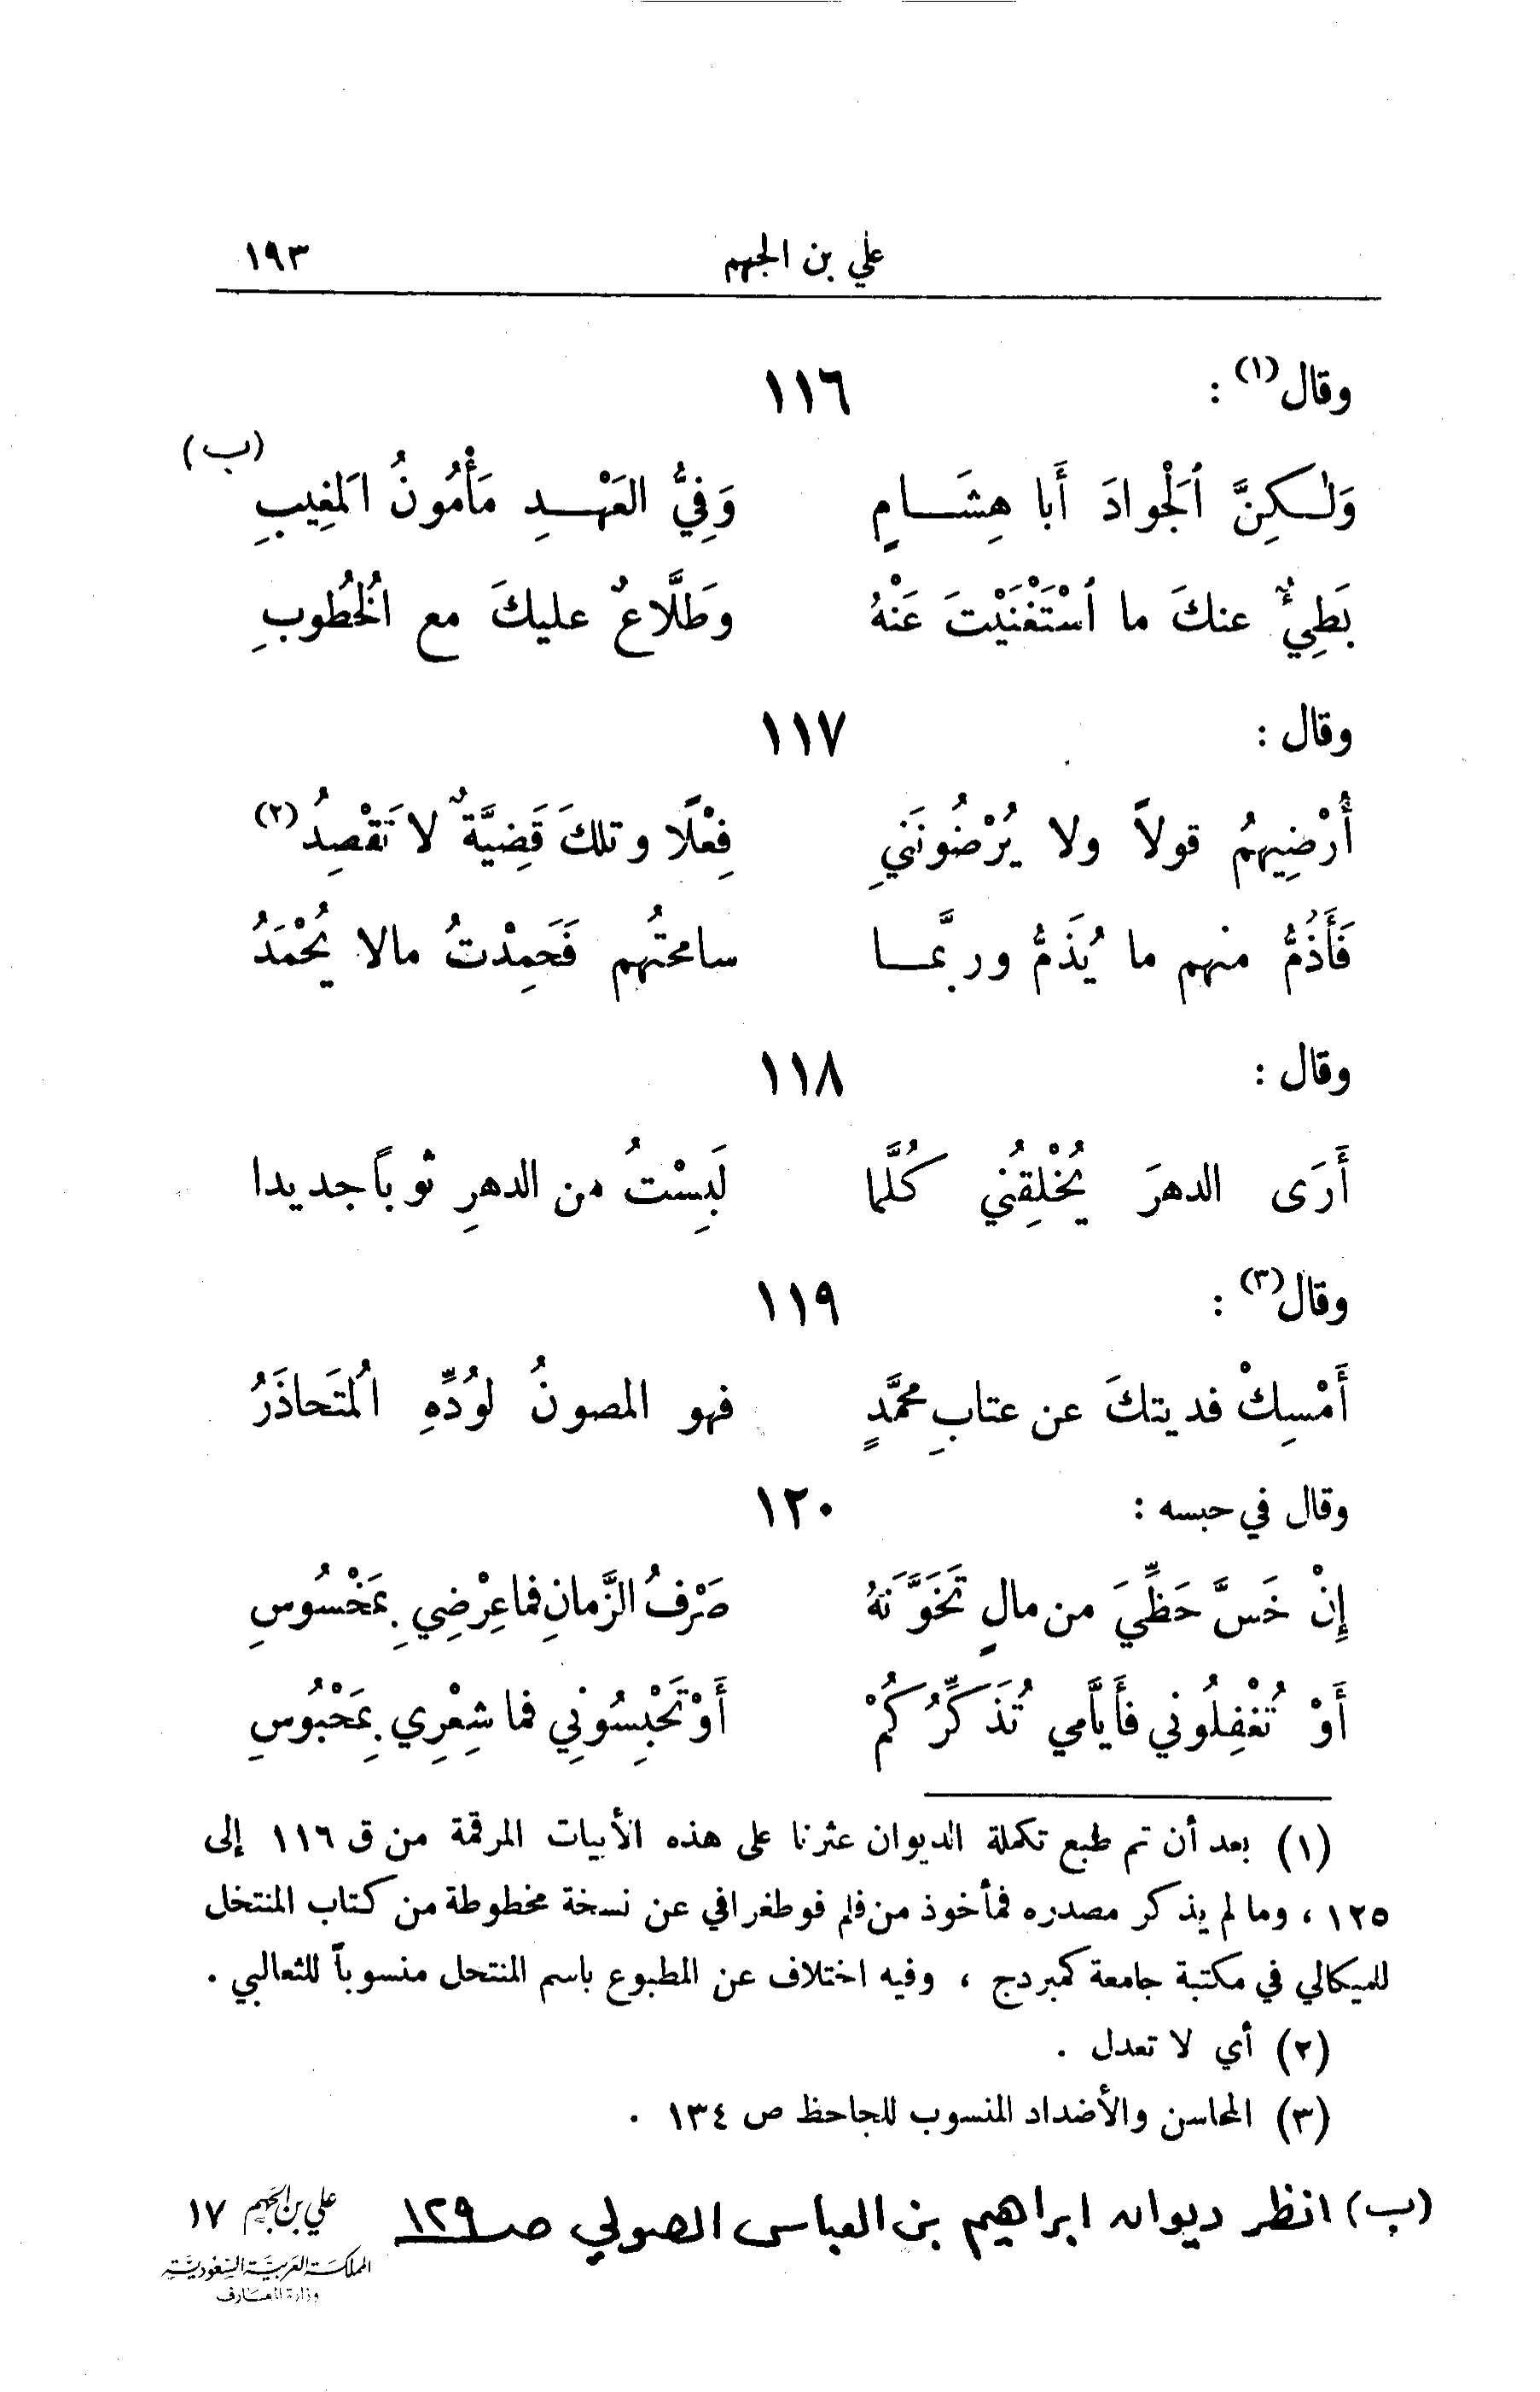 علي بن الجهم ١٩٣
وقال (١) : ١١٦
(ب)
وَلٰكِنَّ ٱلْجوادَ أَبا هِشَامٍ وَفِيُّ العَهْدِ مَأْمُونُ المَغِيبِ
بَطِيءٌ عنكَ ما ٱسْتَغْنَيْتَ عَنْهُ وَطَلَّاعٌ عليكَ مع الخُطُوبِ
وقال : ١١٧
أُرْضِيهمُ قولاً ولا يُرْضُونَنِي فِعْلًا وتلكَ قَضِيَّةٌ لا تَقْصِدُ (٢)
فَأَذُمُّ منهم ما يُذَمُّ وربَّما سامحتُهم فَحَمِدْتُ مالا يُحْمَدُ
وقال : ١١٨
أَرَى الدهرَ يُخْلِقُني كُلَّما لَبِسْتُ من الدهرِ ثوباً جديدا
وقال (٣) : ١١٩
أَمْسِكْ فديتكَ عن عتابِ محمَّدٍ فهو المصونُ لوُدِّهِ المُتَحاذَرُ
وقال في حبسه : ١٢٠
إِنْ خَسَّ حَظِّيَ من مالٍ تَخَوَّنَهُ صَرْفُ الزَّمانِ فما عِرْضِي بِمَخْسُوسِ
أَوْ تُغْفِلُوني فأَيَّامي تُذَكِّرُكُمْ أَوْ تَحْبِسُونِي فما شِعْرِي بِمَحْبُوسِ
(١) بعد أن تم طبع تكملة الديوان عثرنا على هذه الأبيات المرقمة من ق ١١٦ إلى
١٢٥ ، وما لم يذكر مصدره فمأخوذ من فلم فوطغرافي عن نسخة مخطوطة من كتاب المنتخل
للميكالي في مكتبة جامعة كمبردج ، وفيه اختلاف عن المطبوع باسم المنتحل منسوباً للثعالبي .
(٢) أي لا تعدل .
(٣) المحاسن والأضداد المنسوب للجاحظ ص ١٣٤ .
(ب) انظر ديوان ابراهيم بن العباس الصولي صـ ١٢٩
علي بن الجهم ١٧
المملكة العربية السعودية
وزارة المعارف